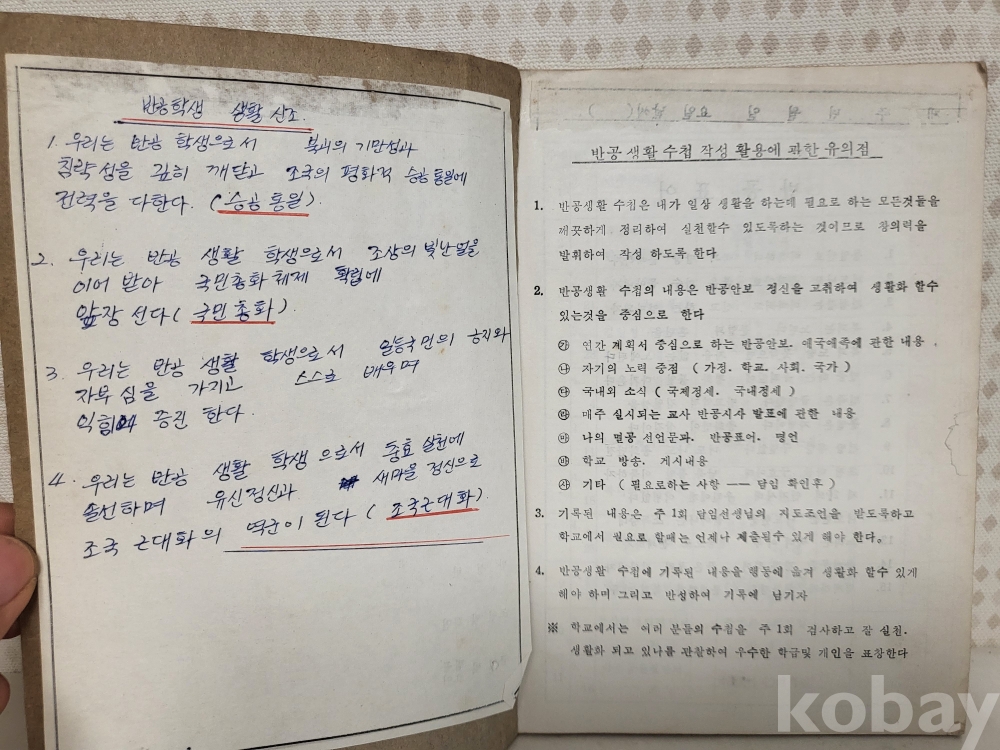 반공학생 생활 신조.
1. 우리는 반공 학생으로서 북괴의 기만성과
침략성을 깊히 깨닫고 조국의 평화적 승공통일에
전력을 다한다. (승공통일)
2. 우리는 반공 생활 학생으로서 조상의 빛난얼을
이어 받아 국민총화체제 확립에
앞장 선다 (국민총화)
3. 우리는 반공 생활 학생으로서 일등국민의 긍지와
자부심을 가지고 스스로 배우며
익힘에 증진 한다.
4. 우리는 반공 생활 학생 으로서 충효 실천에
솔선하며 유신정신과 새마을 정신으로
조국 근대화의 역군이 된다 (조국근대화).
반공 생활 수첩 작성 활용에 관한 유의점
1. 반공생활 수첩은 내가 일상 생활을 하는데 필요로 하는 모든것들을
깨끗하게 정리하여 실천할수 있도록하는 것이므로 창의력을
발휘하여 작성 하도록 한다
2. 반공생활 수첩의 내용은 반공안보 정신을 고취하여 생활화 할수
있는것을 중심으로 한다
㉮ 연간 계획서 중심으로 하는 반공안보. 애국애족에 관한 내용.
㉯ 자기의 노력 중점 ( 가정. 학교. 사회. 국가 )
㉰ 국내외 소식 ( 국제정세. 국내정세 )
㉱ 매주 실시되는 교사 반공시사 발표에 관한 내용
㉲ 나의 멸공 선언문과. 반공표어. 명언
㉳ 학교 방송. 게시내용
㉴ 기타 ( 필요로하는 사항 ── 담임 확인후 )
3. 기록된 내용은 주 1회 담임선생님의 지도조언을 받도록하고
학교에서 필요로 할때는 언제나 제출될수 있게 해야 한다.
4. 반공생활 수첩에 기록된 내용을 행동에 옮겨 생활화 할수 있게
해야 하며 그리고 반성하여 기록에 남기자
※ 학교에서는 여러 분들의 수첩을 주 1회 검사하고 잘 실천.
생활화 되고 있나를 관찰하여 우수한 학급및 개인을 표창한다
kobay